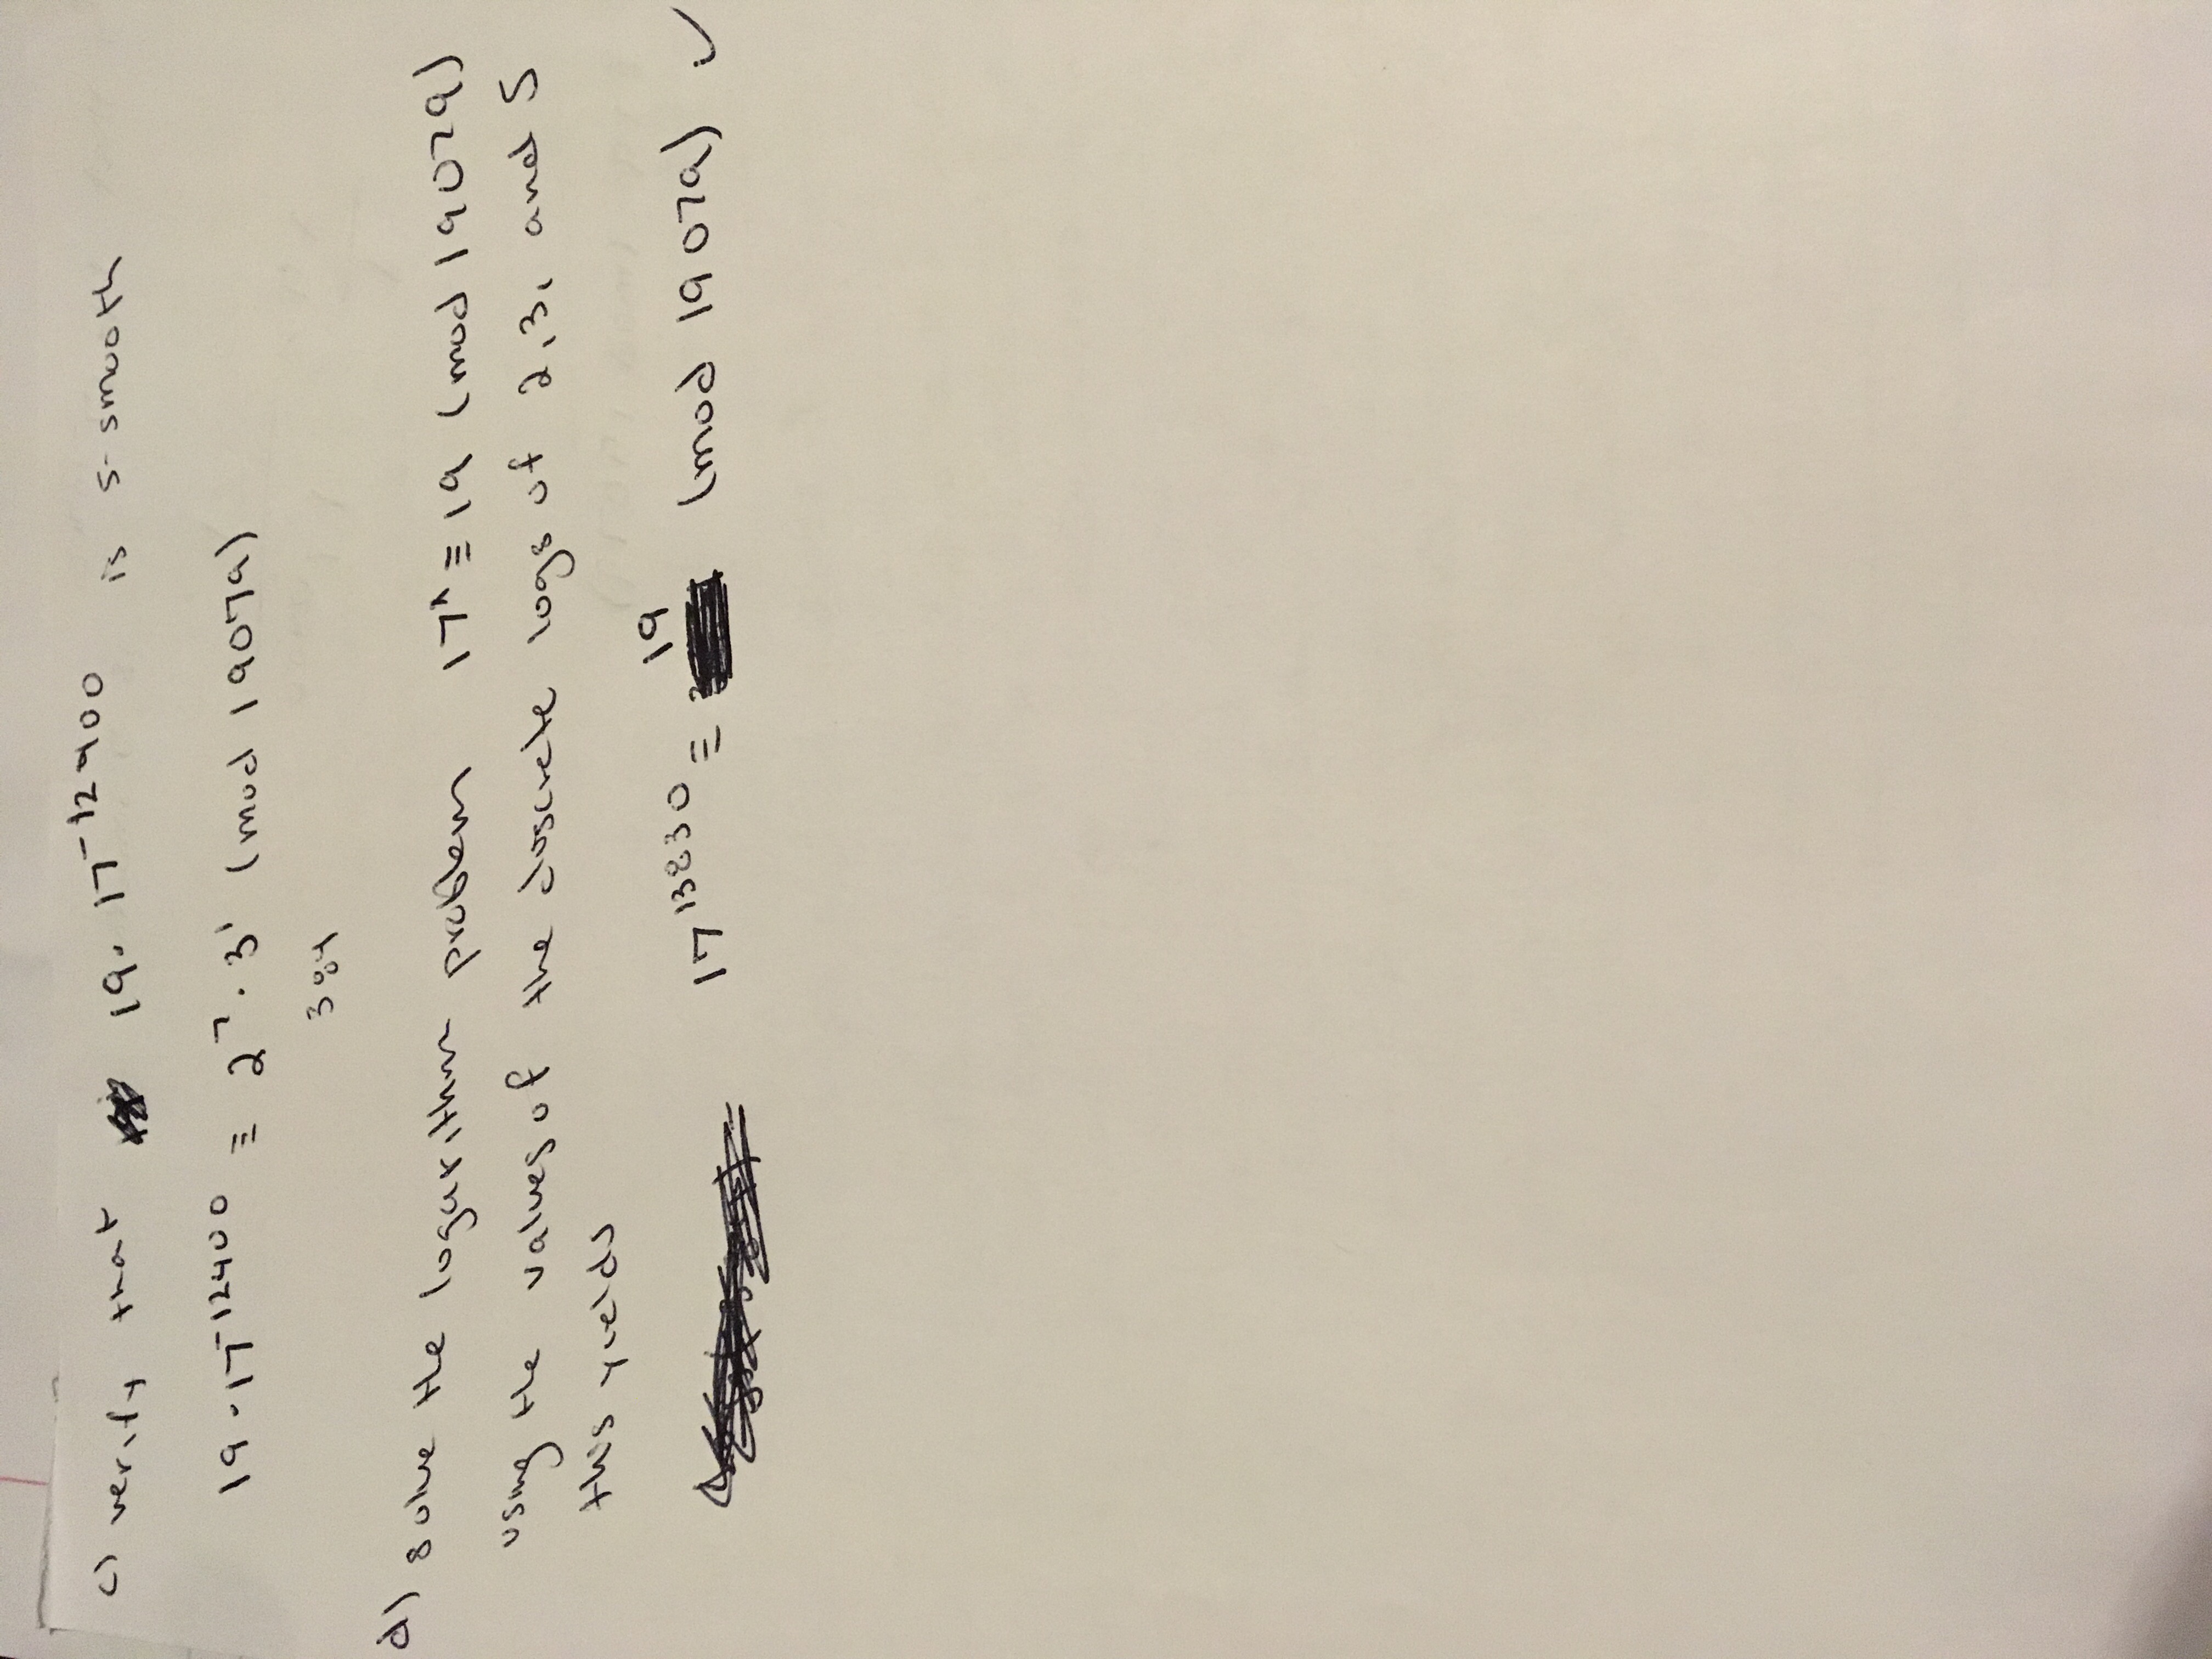 c) verify that 19. 17^-12400 is 5-smooth
19 · 17^-12400 ≡ 2^7 · 3^1 (mod 19079)
384
d) solve the logarithm problem 17^x ≡ 19 (mod 19079)
using the values of the discrete logs of 2, 3, and 5
this yields
17^13830 ≡ 19 (mod 19079) ✓